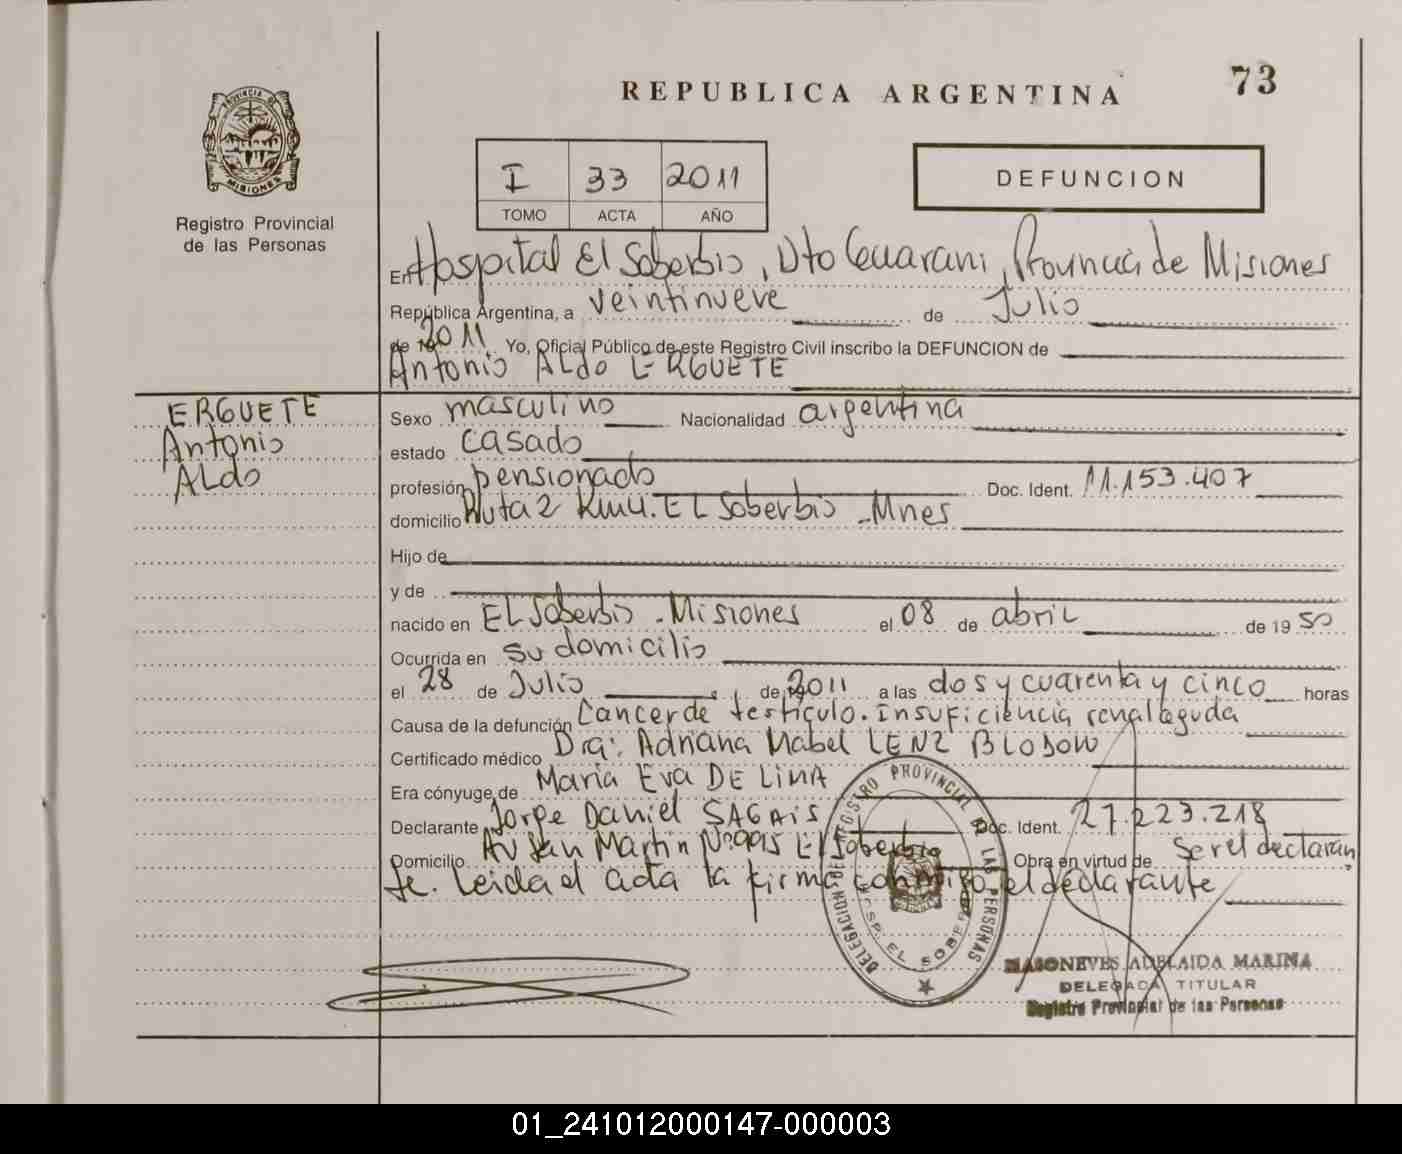 73
REPUBLICA ARGENTINA
PROVINCIA DE
MISIONES
Registro Provincial
de las Personas
I 33 2011
TOMO ACTA AÑO
DEFUNCION
En Hospital El Soberbio, Dto Guarani, Provincia de Misiones
República Argentina, a veintinueve de Julio
de 2011. Yo, Oficial Público de este Registro Civil inscribo la DEFUNCION de
Antonio ALdo ERGUETE
ERGUETE
Antonio
ALdo
Sexo masculino Nacionalidad argentina
estado casado
profesión pensionado Doc. Ident. 11.153.407
domicilio Ruta 2 Km 4. EL Soberbio - Mnes
Hijo de
y de
nacido en EL Soberbio - Misiones el 08 de abril de 19 50
Ocurrida en su domicilio
el 28 de Julio de 2011 a las dos y cuarenta y cinco horas
Causa de la defunción Cancer de testiculo. Insuficiencia renal aguda
Certificado médico Dra: Adriana Mabel LENZ BLOSOW
Era cónyuge de Maria Eva DE LIMA
Declarante Jorge Daniel SAGAIS Doc. Ident. 27.223.218
Domicilio Av San Martin Nº 995 El Soberbio Obra en virtud de ser el declaran
te. Leida el acta la firma conmigo el declarante
REGISTRO PROVINCIAL DE LAS PERSONAS
DELEGACION
HOSP. EL SOBERBIO
MASONEVES ADELAIDA MARINA
DELEGADA TITULAR
Registro Provincial de las Personas
01_241012000147-000003